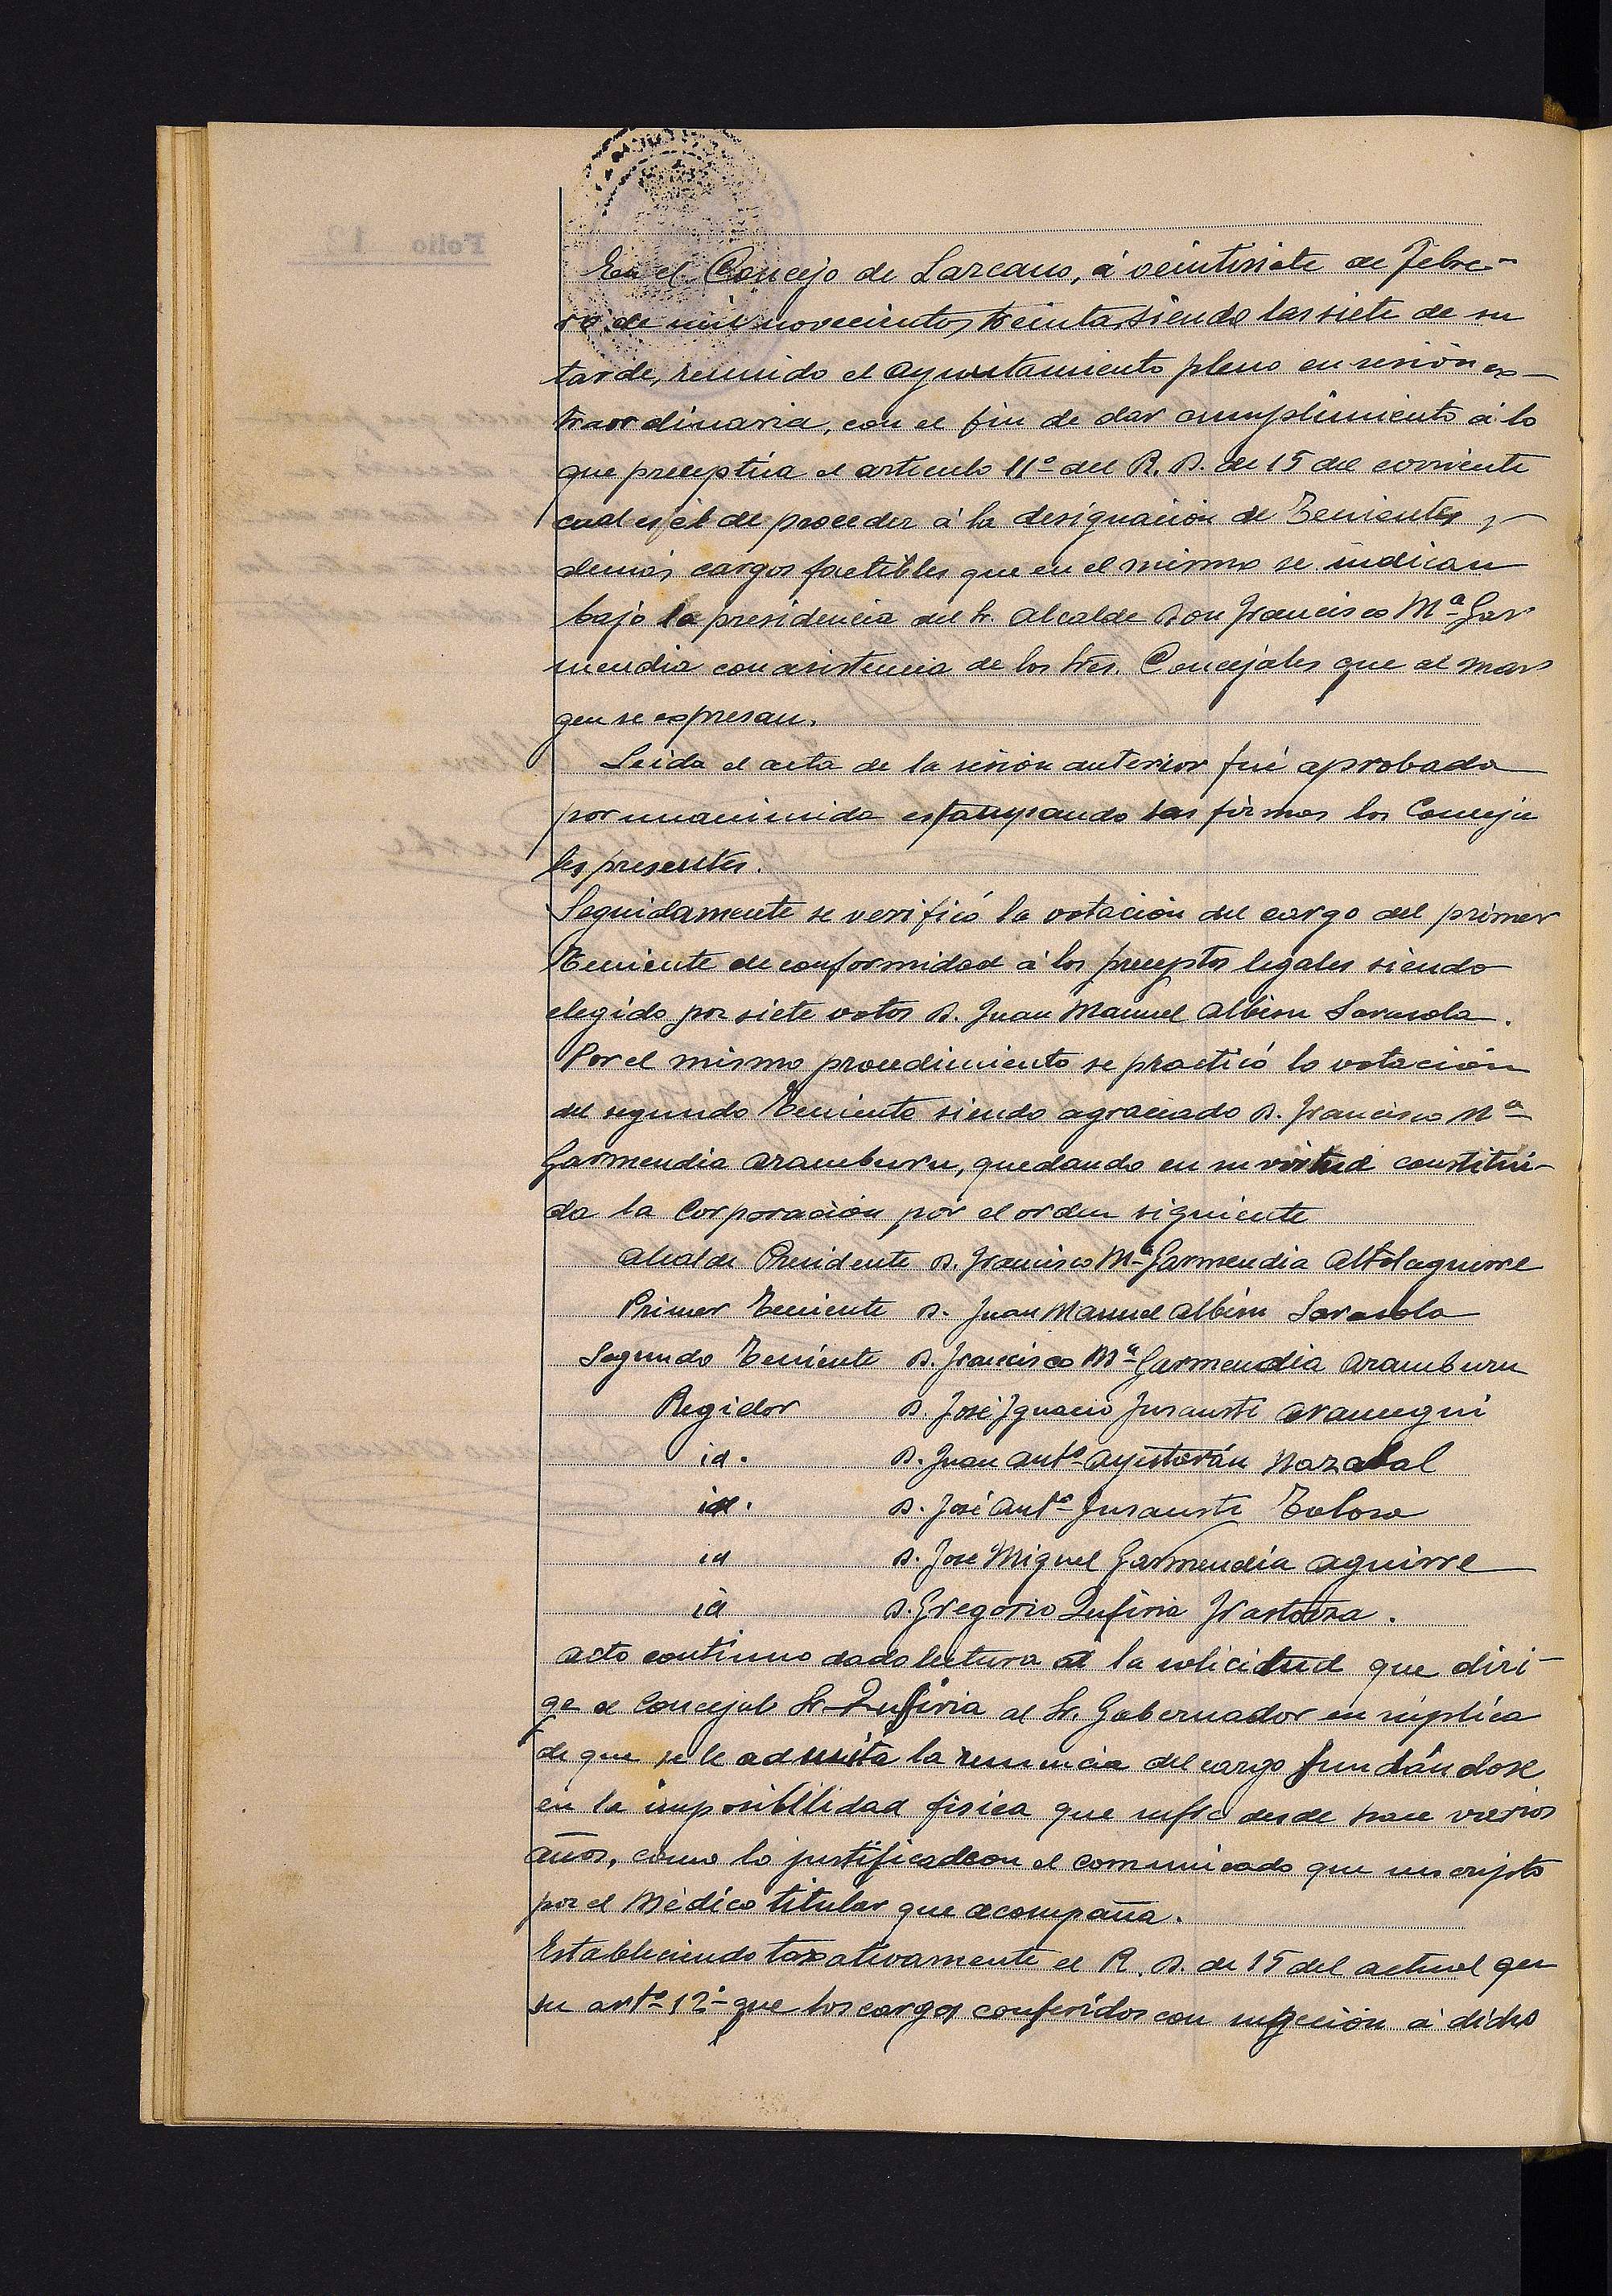 En el Concejo de Lazcano, á veintisiete de Febre-
ro de mil novecientos treinta siendo las siete de su
tarde, reunido el Ayuntamiento pleno en sesión ex-
traordinaria, con el fin de dar cumplimiento á lo
que preceptúa el artículo 11º del R. D. de 15 del corriente
cual es el de proceder á la designación de Tenientes y
demás cargos factibles que en el mismo se indican
bajo la presidencia del Sr. Alcalde Don Francisco Mª Gar
mendia con asistencia de los Sres. Concejales que al mar
gen se expresan.
Leída el acta de la sesión anterior fué aprobada
por unanimida estampando las firmas los Conceja
les presentes.
Seguidamente se verificó la votación del cargo del primer
Teniente de conformidad á los preceptos legales siendo
elegido por siete votos D. Juan Manuel Albisu Sarasola.
Por el mismo procedimiento se practicó la votación
del segundo Teniente siendo agraciado D. Francisco Mª
Garmendia Aramburu, quedando en su virtud constitui-
da la Corporación por el orden siguiente
Alcalde Presidente D. Francisco Mª Garmendia Altolaguirre
Primer Teniente D. Juan Manuel Albisu Sarasola
Segundo Teniente D. Francisco Mª Garmendia Aramburu
Regidor D. José Ignacio Insausti Arancegui
id. D. Juan Antº Ayestarán Nazabal
id. D. José Antº Insausti Tolosa
id D. José Miguel Garmendia Aguirre
id D. Gregorio Zufiria Irastorza.
Acto continuo dado lectura á la solicitud que diri-
ge el Concejal Sr. Zufiria al Sr. Gobernador en súplica
de que se le admita la renuncia del cargo fundándose
en la imposibilidad física que sufre desde hace varios
años, como lo justifica con el comunicado que suscripto
por el Médico titular que acompaña.
Estableciendo taxativamente el R. D. de 15 del actual que
su artº 12º que los cargos conferidos con sujeción á dicho
Folio